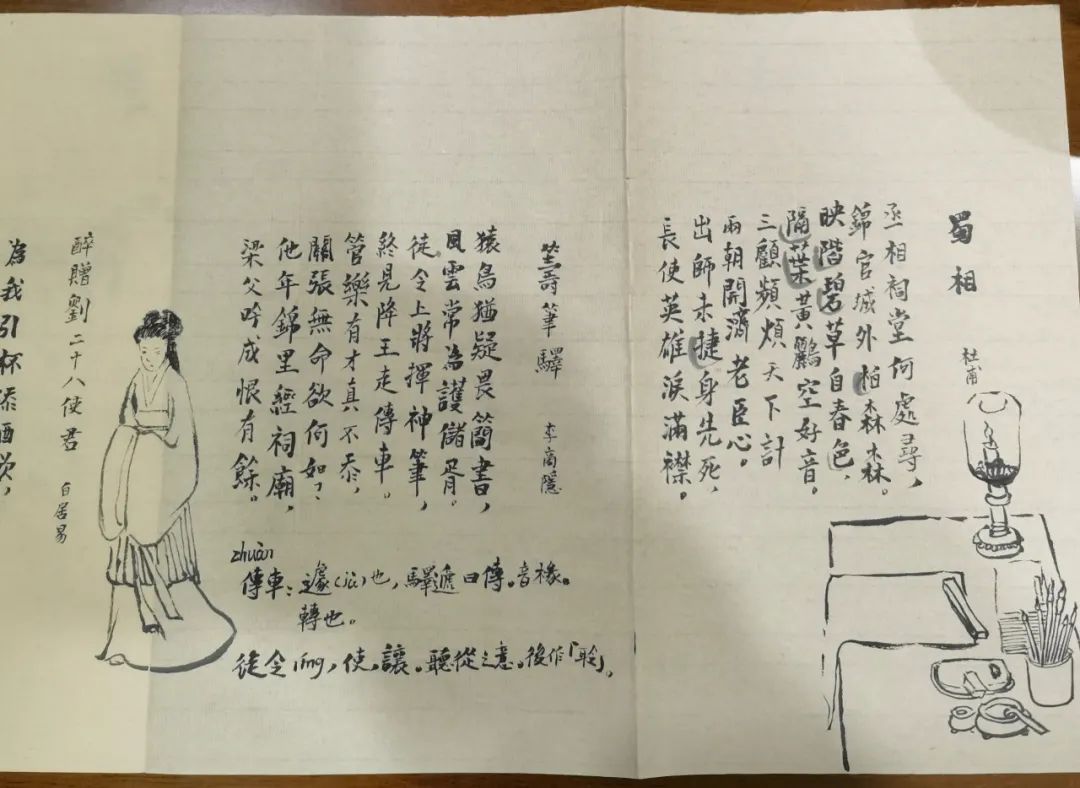 蜀相
杜甫
丞相祠堂何處尋，
錦官城外柏森森。
映階碧草自春色，
隔葉黃鸝空好音。
三顧頻煩天下計
兩朝開濟老臣心。
出師未捷身先死，
長使英雄淚滿襟。
籌筆驛 李商隱
猿鳥猶疑畏簡書，
風雲常為護儲胥。
徒令上將揮神筆，
終見降王走傳車。
管樂有才真不忝，
關張無命欲何如、
他年錦里經祠廟，
梁父吟成恨有餘。
zhuàn
傳車：遽（）也，驛遞曰傳。音椽。
轉也。
徒令líng，使，讓。聽從之意。後作「聆」，
醉贈劉二十八使君 白居易
為我引杯添酒飲，